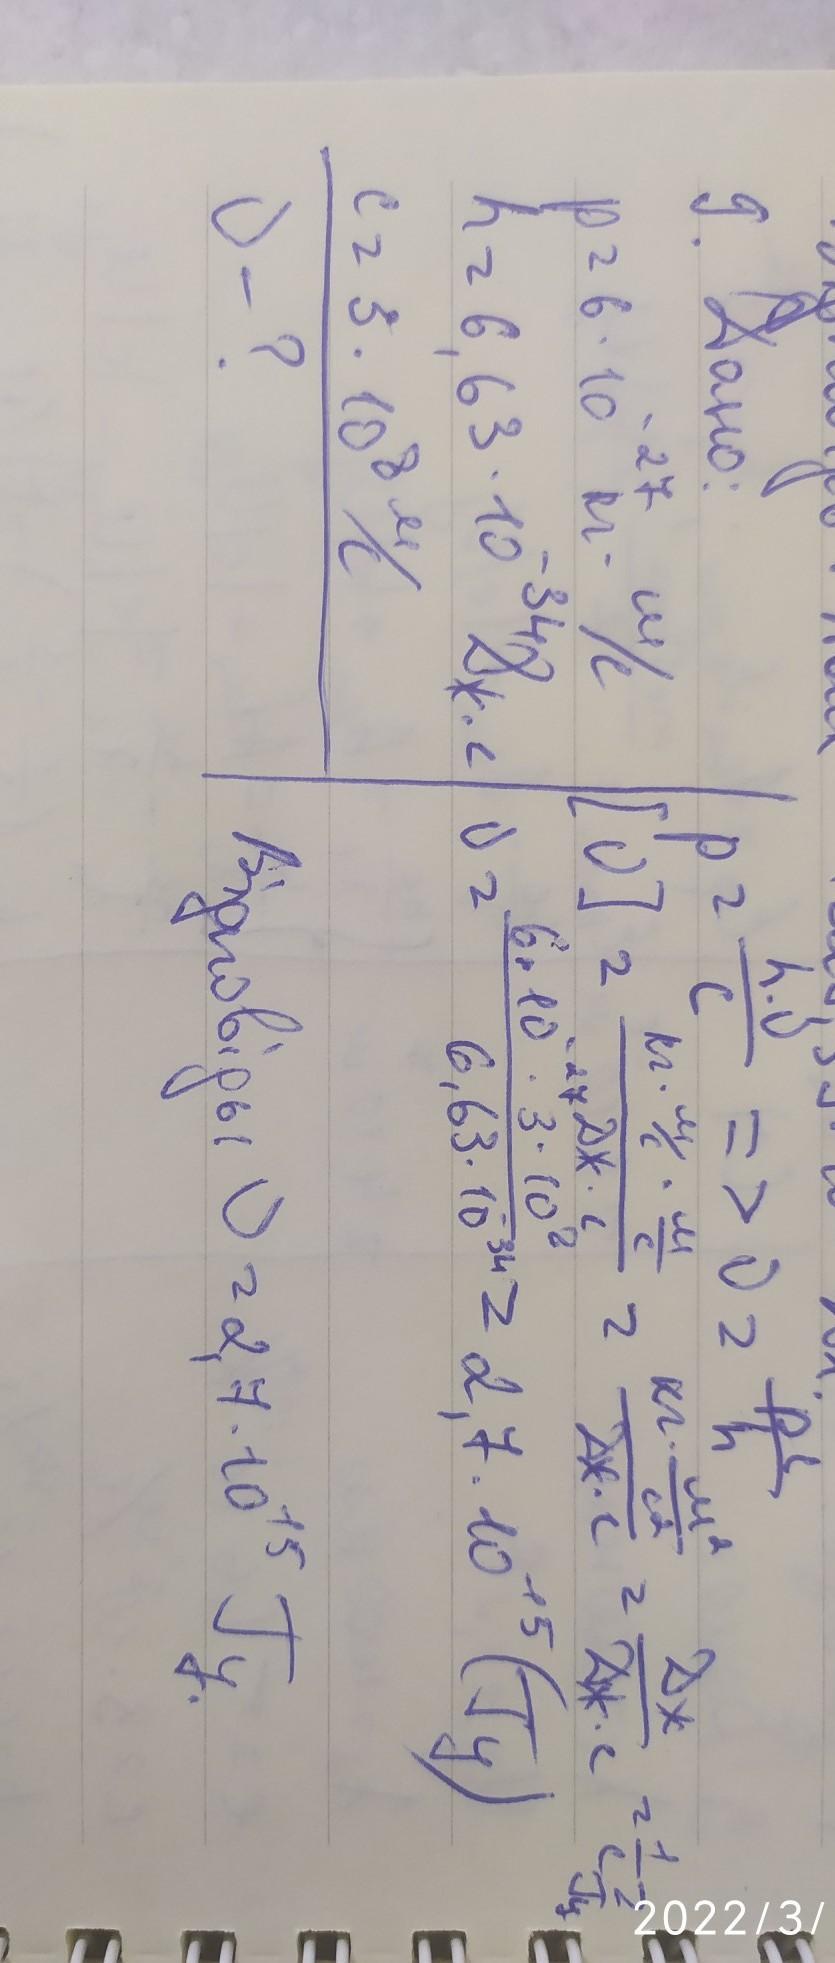 9. Дано:
p = 6 · 10^-27 кг · м/с
h = 6,63 · 10^-34 Дж·с
c = 3 · 10^8 м/с
υ - ?
p = h·υ/c => υ = pc/h
[υ] = (кг · м/с · м/с)/(Дж·с) = (кг · м²/с²)/(Дж·с) = Дж/(Дж·с) = 1/с = Гц
υ = (6 · 10^-27 · 3 · 10^8)/(6,63 · 10^-34) = 2,7 · 10^15 (Гц)
Відповідь: υ = 2,7 · 10^15 Гц.
2022/3/